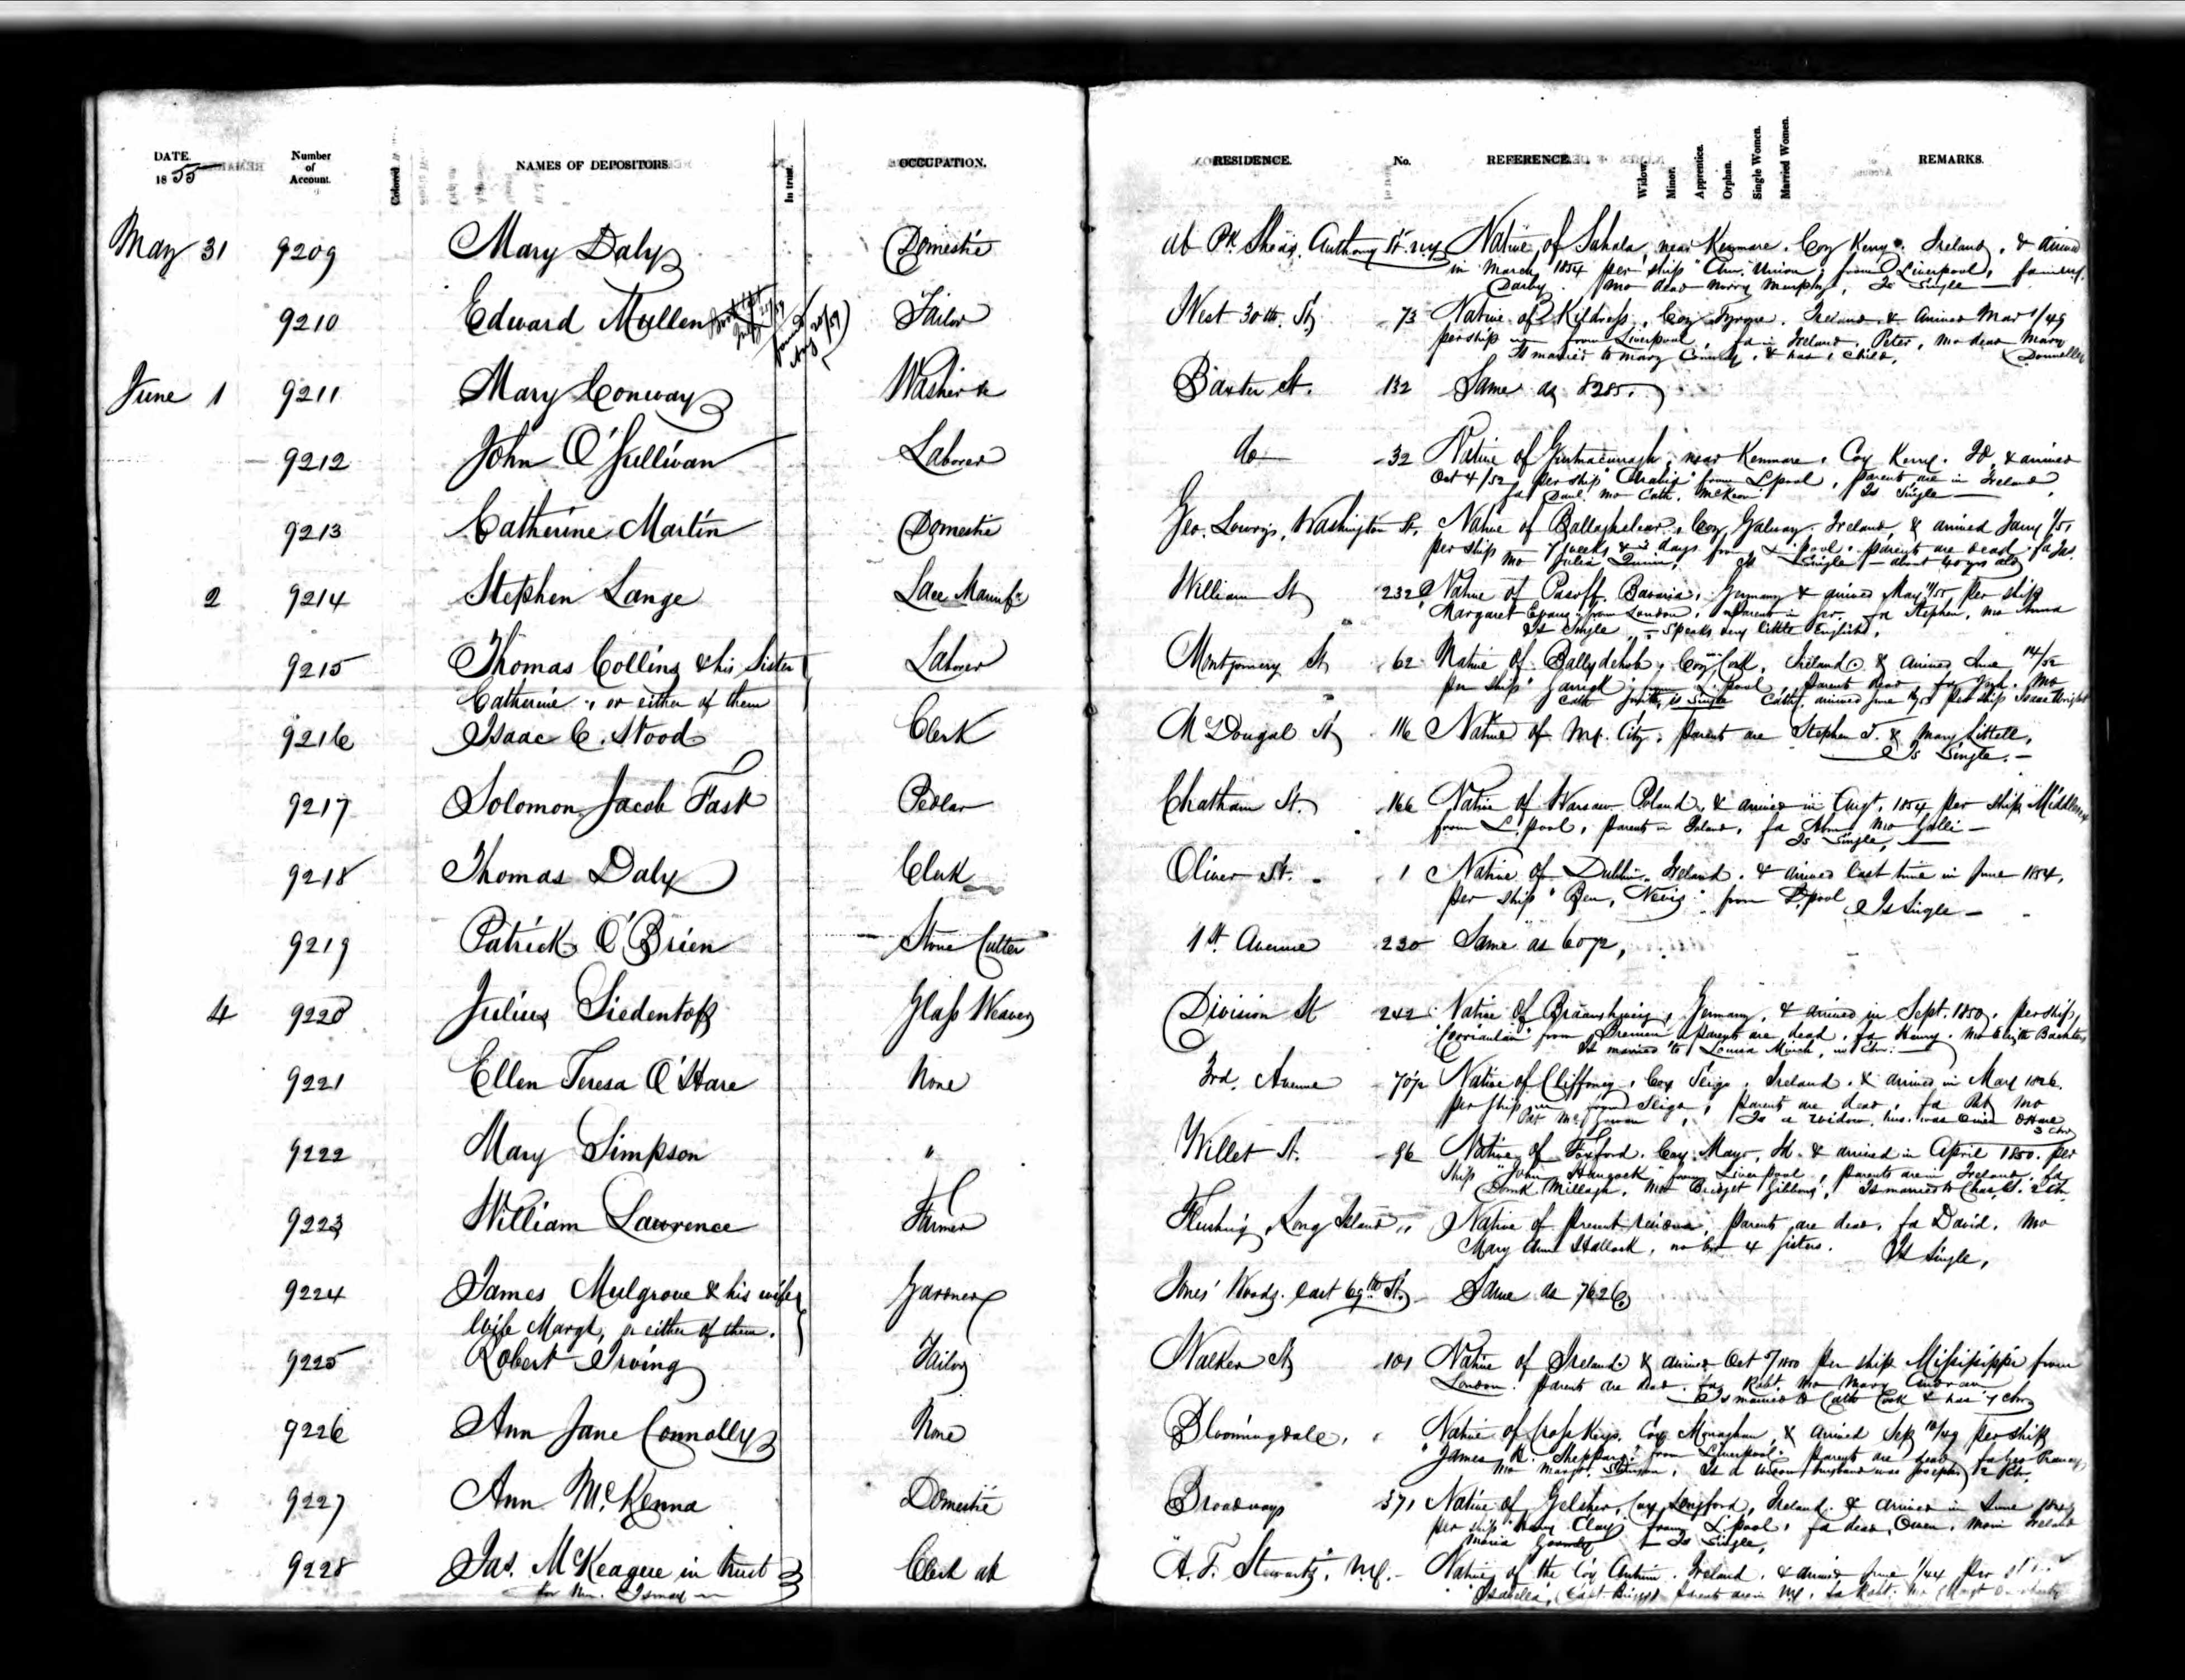 DATE.
1855
Number
of
Account.
Colored
NAMES OF DEPOSITORS
In trust.
OCCUPATION.
RESIDENCE.
No.
REFERENCE.
Widow.
Minor.
Apprentice.
Orphan.
Single Women.
Married Women.
REMARKS.
May 31 9209 Mary Daly Domestic ab Pk Sheas, Anthony St. N.Y. Native of Sahala, near Kenmare, Coy Kerry. Ireland, & arrived
in March 1854 per ship "Am. Union" from Liverpool,
mo dead Mary Murphy, Is Single
9210 Edward Mullen Tailor West 30th St 73 Native of Kildress, Coy Tyrone. Ireland & arrived Mar 1/49
per ship from Liverpool, fa in Ireland, Peter, mo dead Mary
Is married to Mary Conway, & has 1 child, Donnelly
June 1 9211 Mary Conway Washer &c Baxter St. 132 Same as 8285.
9212 John O'Sullivan Laborer do 32 Native of near Kenmare, Coy Kerry. Id, & arrived
Oct 4/52 per ship from L.pool, parents are in Ireland,
fa Danl. mo Cath. Is Single
9213 Catherine Martin Domestic Geo. Lowry's, Washington St. Native of Coy Galway. Ireland, & arrived Jany 1/51
per ship 7 weeks & days from L.pool, parents are dead fa Jas.
mo Julia Quinn, Is Single about 40 yrs old
2 9214 Stephen Lange Lace Manufr William St 232 Native of Bavaria, Germany & arrived May per ship
"Margaret Evans" from London, Parents in Ger. fa Stephen, mo Anna
Is Single, - Speaks very little English.
9215 Thomas Collins & his Sister Laborer Montgomery St 62 Native of Ballydehob, Coy Cork, Ireland & arrived June 14/52
Catherine, or either of them per ship "Garrick" from L.pool, Parents dead, fa mo
Cath is Single Cath. arrived June per ship Isaac Wright
9216 Isaac C. Stood Clerk McDougal St 116 Native of N.Y. City, parents are Stephen T. & Mary Littell,
Is Single. -
9217 Solomon Jacob Task Pedlar Chatham St. 166 Native of Warsaw Poland, & arrived in Augt. 1854 per ship
from L.pool, parents in Poland, fa Abm mo
Is Single,
9218 Thomas Daly Clerk Oliver St. 1 Native of Dublin, Ireland. & arrived last time in June 1854,
per ship "Ben, Nevis" from L.pool Is Single -
9219 Patrick O'Brien Stone Cutter 1st. Avenue 230 Same as 6072,
4 9220 Julius Siedentop Glass Weaver Division St 242 Native of Braunshweig, Germany, & arrived in Sept. 1850, per ship,
"Corriaulan" from Bremen parents are dead, fa Henry. mo
Is married to Louisa
9221 Ellen Teresa O'Hare None 3rd. Avenue Native of Cliffoney, Coy Sligo. Ireland. & arrived in May 1826.
per ship from Sligo, parents are dead, fa mo
McGowan, Is a widow, hus. was Owen O'Hare
3 chn
9222 Mary Simpson " Willet St. 96 Native of Foxford. Coy Mayo, Id. & arrived in April 1850. per
ship "John Hancock" from Liverpool, parents are in Ireland, fa
mo Bridget Gibbons, Is married to Chas. 2 ch.
9223 William Lawrence Farmer Flushing, Long Island,, Native of present residence, parents are dead, fa David. mo
Mary Ann Hallock, no bro 4 sisters. Is Single,
9224 James Mulgrove & his wife Gardener Jones' Woods. East 69th St. Same as 7626
Wife Margt, or either of them.
9225 Robert Irving Tailor Walker St 101 Native of Ireland & arrived Oct per ship Mississippi from
London. parents are dead. fa Robt. mo Mary
Is married to Cath Cook & has 7 chn
9226 Ann Jane Connolly None Bloomingdale. Native of Cross Keys, Coy Monaghan, & arrived Sep 10/49 per ship
"James H. Sheppard" from Liverpool. parents are dead fa Geo
mo Margt. Is a Widow husband was Joseph,
9227 Ann McKenna Domestic Broadway 371 Native of Coy Longford, Ireland. & arrived in June
per ship "Henry Clay" from L.pool, fa dead, Owen, mo in Ireland
Maria Is Single,
9228 Jas. McKeague in trust Clerk at A.T. Stewarts, N.Y. Native of the Coy Antrim. Ireland, & arrived June 1/44 per
"Isabella", parents are in N.Y. fa Robt. mo Margt